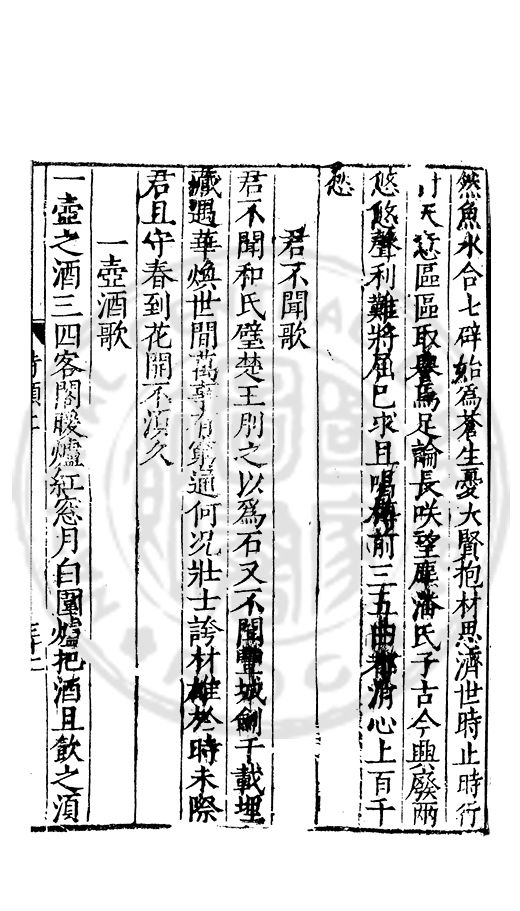 然魚水合七辟始為蒼生憂大賢抱材思濟世時止時行
天區區取譽焉足論長咲望塵潘氏子古今興廢兩
悠悠聲利難將屈已求且唱樽前三五曲都消心上百千
愁
君不聞歌
君不聞和氏璧楚王刖之以為石又不聞豐城劒千載埋
藏遇華煥世間萬事有窮通何況壯士誇材雄於時未際
君且守春到花開不湏久
一壺酒歌
一壺之酒三四客閣暖爐紅窓月白圍爐把酒且飲之湏